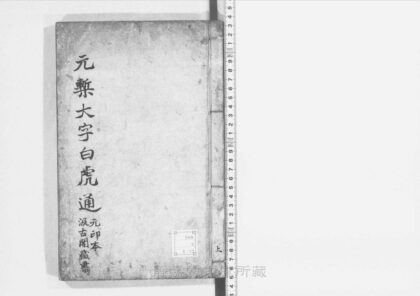 元槧大字白虎通
元印本
汲古閣藏書
上
所藏